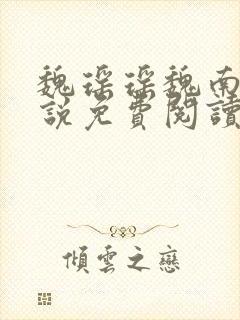 魏瑶瑶魏南
說免費閱讀
傾雲之戀